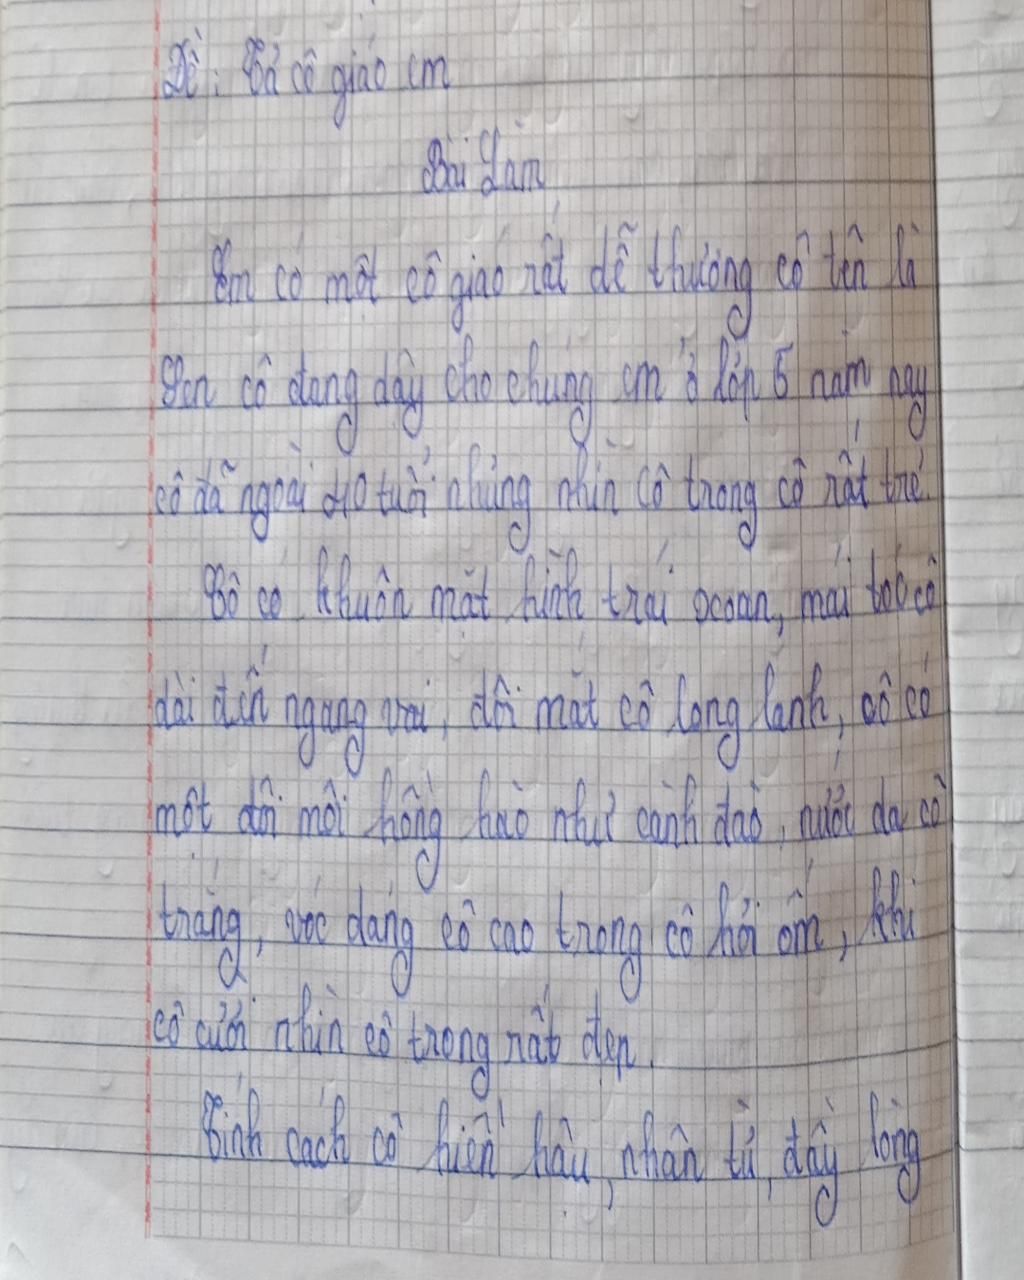 Đề: Tả cô giáo em
Bài Làm
Em có một cô giáo rất dễ thương cô tên là
Sen cô đang dậy cho chúng em ở lớp 5 năm nay
cô đã ngoài 40 tuổi nhưng nhìn cô trong cô rất trẻ.
Cô có khuôn mặt hình trái xoan, mái tóc cô
dài đến ngang vai, đôi mắt cô long lanh, cô có
một đôi môi hồng hào như cành đào, nước da cô
trắng, vóc dáng cô cao trong cô hơi ốm, khi
cô cười nhìn cô trong rất đẹp.
Tính cách cô hiền hậu, nhân từ, đầy lòng